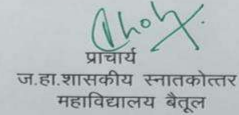 प्राचार्य
ज.हा.शासकीय स्नातकोत्तर
महाविद्यालय बैतूल